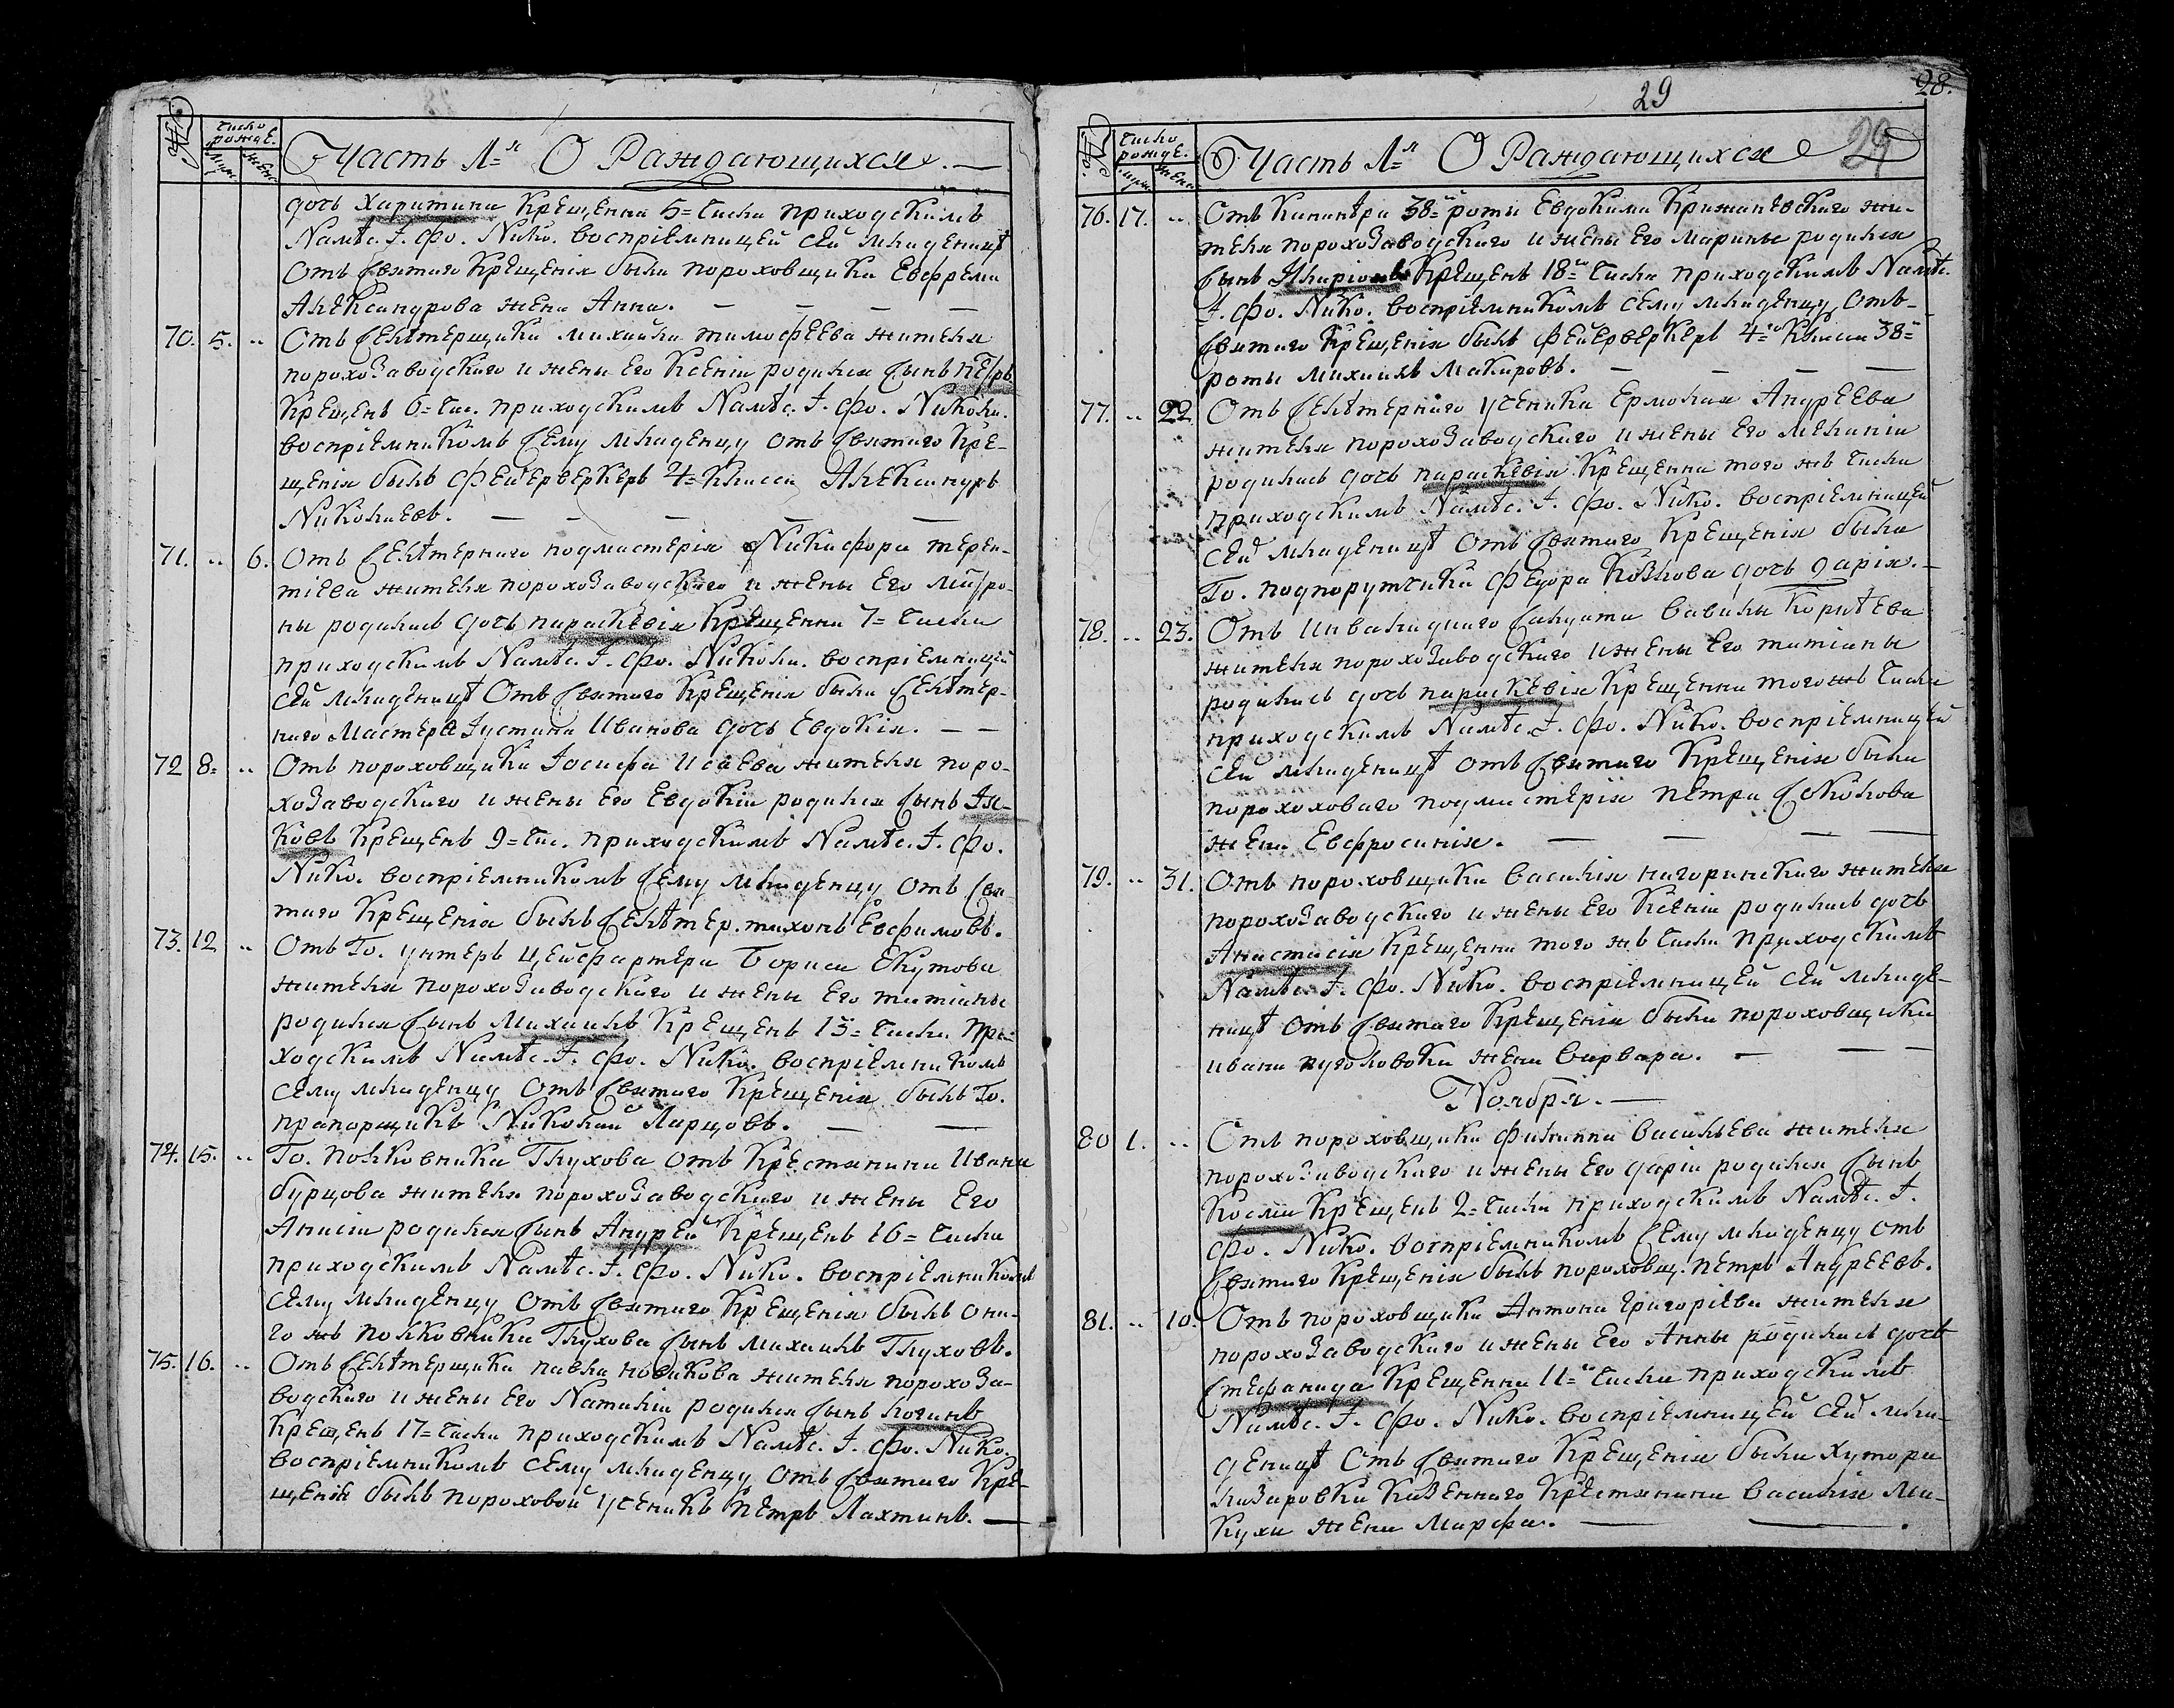 №
Число рожде.
Муж. Жен.
Часть 1=я О Раждающихся.
дочь Харитина Крещенна 5= Числа приходскимъ
Намѣс. І. Фо. Нико. воспріемницей сей младеницѣ
Отъ Святаго Крещенія была пороховщика Евфрема
Александрова жена Анна. — — — —
70. 5. .. Отъ Селѣтерщика михайла тимофѣева жителя
порохозаводскаго и жены его Ксеніи родился Сынъ Петръ
Крещенъ 6= Чис. приходскимъ Намѣс. І. Фо. Никола.
воспріемникомъ Сему младенцу отъ Святаго Кре-
щенія былъ Фейерверкеръ 4= Класса Александръ
Николаевъ. — — — — —
71. .. 6. Отъ Селѣтернаго подмастерія Никифора терен-
тіева жителя порохозаводскаго и жены Его Матро-
ны родилась дочь параскевія Крещенна 7= Числа
приходскимъ Намѣс. І. Фо. Никола. воспріемницей
сей младеницѣ Отъ Святаго Крещенія была Селѣтер-
наго Мастера Іустина Иванова дочь Евдокія. — —
72 8= .. Отъ пороховщика Іосифа Исаева жителя поро-
хозаводскаго и жены Его Евдокіи родился Сынъ Іа-
ковъ Крещенъ 9= Чис. приходскимъ Намѣс. І. Фо.
Нико. воспріемникомъ Сему младенцу отъ Свя-
таго Крещенія былъ Селѣтер. тихонъ Евфимовъ.
73. 12 .. Отъ Го. унтеръ Цейфартера Бориса Екутова
жителя порохозаводскаго и жены Его татіаны
родился Сынъ Михаилъ Крещенъ 13= Числа При-
ходскимъ Намѣс. І. Фо. Нико. воспріемникомъ
сему младенцу Отъ Святаго Крещенія былъ Го.
прапорщикъ Николай Ларцовъ. — —
74. 15. .. Го. полковника Глухова отъ Крестянина Ивана
бурцова жителя порохозаводскаго и жены Его
Анисіи родился Сынъ Андрей Крещенъ 16= Числа
приходскимъ Намѣс. І. Фо. Нико. воспріемникомъ
сему младенцу Отъ Святаго Крещенія былъ она-
го жъ полковника Глухова Сынъ михаилъ Глуховъ.
75. 16. .. Отъ Селѣтерщика павла новикова жителя порохоза-
водскаго и жены Его Наталіи родился Сынъ логинъ
Крещенъ 17= Числа приходскимъ Намѣс. І. Фо. Нико.
воспріемникомъ сему младенцу отъ Святаго Кре-
щенія былъ пороховой ученикъ Петръ Лахтинъ. —
29
28.
29
№
Число рожде.
Муж. Жен.
Часть 1=я О Раждающихся
76. 17. .. Отъ Канонѣра 38=й роты Евдокима Крижановскаго жи-
теля порохозаводскаго и жены Его Марины родился
Сынъ Иларіонъ Крещенъ 18=го Числа приходскимъ Намѣс.
І. Фо. Нико. воспріемникомъ сему младенцу Отъ-
Святаго Крещенія былъ Фейерверкеръ 4=го Класса 38=й
роты михаилъ Макаровъ. — — — —
77. .. 22. Отъ Селѣтернаго ученика Ермолая Андреева
жителя порохозаводскаго и жены Его Меланіи
родилась дочь параскевія Крещенна того жъ Числа
приходскимъ Намѣс. І. Фо. Нико. воспріемницей
сей младеницѣ Отъ Святаго Крещенія была
Го. подпоручика Федора Козлова дочь дарія. —
78. .. 23. Отъ Инвалиднаго Салдата Вавилы Корнѣева
жителя порохозаводскаго и жены Его татіаны
родилась дочь параскевія Крещенна тогожъ Числа
приходскимъ Намѣс. І. Фо. Нико. воспріемницей
сей младеницѣ отъ Святаго Крещенія была
порохоховаго подмастерія Петра Соколова
жена Евфросинія. — — — —
79. .. 31. Отъ пороховщика василія нагоринскаго жителя
порохозаводскаго и жены Его Ксеніи родилась дочь
Анастасія Крещенна того жъ Числа приходскимъ
Намѣс. І. Фо. Нико. воспріемницей сей младе-
ницѣ отъ Святаго Крещенія была пороховщика
ивана пуголовки жена варвара. — — —
Ноября. —
80 1. .. Отъ пороховщика филиппа васильева жителя
порохозаводскаго и жены Его даріи родился Сынъ
Косма Крещенъ 2= Числа приходскимъ Намѣс. І.
Фо. Нико. воспріемникомъ Сему младенцу отъ
Святаго Крещенія былъ пороховщ. петръ Андреевъ.
81. .. 10. Отъ пороховщика Антона Григоріева жителя
порохозаводскаго и жены Его Анны родилась дочь
Стефанида Крещенна 11=го Числа приходскимъ
Намѣс. І. Фо. Нико. воспріемницей сей мла-
деницѣ Отъ Святаго Крещенія была хутора
лазаровки Казеннаго Крестянина василія Ма-
кухи жена Марфа. — — .